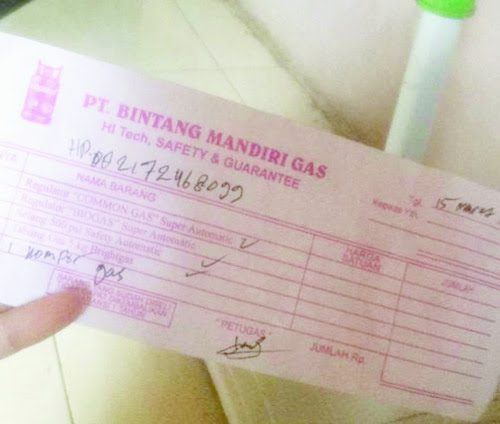 PT. BINTANG MANDIRI GAS
HI Tech, SAFETY & GUARANTEE
HP 082172468099
Tgl 15 maret
Kepada Yth.
NYA NAMA BARANG HARGA SATUAN JUMLAH
Regulator "COMMON GAS" Super Automatic ✓
Regulator "BIOGAS" Super Automatic
Selang Safety Automatic ✓
Tabung Gas 5 kg Brightgas ✓
1 kompor gas
BARANG
"PETUGAS"
JUMLAH Rp.